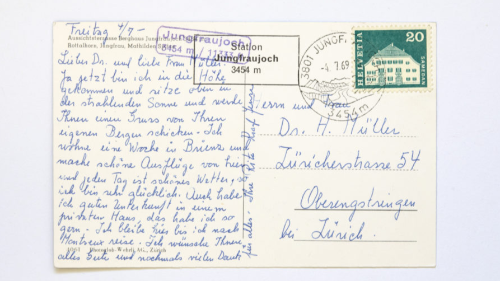 Freitag 4/7-
Aussichtsterrasse Berghaus Jungfraujoch
Rottalhorn, Jungfrau, Mathildenspitze
Jungfraujoch
3454 m / 11333 ft
Station
Jungfraujoch
3454 m
3801 JUNGFRAUJOCH
-4.7.69
3454 m
HELVETIA
20
SAMEDAN
Lieber Dr. und liebe Frau Müller.
Ja jetzt bin ich in die Höhe
gekommen und sitze oben in
der strahlenden Sonne und werde
Ihnen einen Gruss von Ihren
eigenen Bergen schicken. Ich
wohne eine Woche in Brienz und
mache schöne Ausflüge von hier
und jeden Tag ist schönes Wetter, so
ich bin sehr glücklich. Auch habe
ich guten Unterkunft in einem
privaten Haus, das habe ich so
gern. Ich bleibe hier bis ich nach
Montreux reise. Ich wünsche Ihnen
alles Gute und nochmals vielen Dank
für alles. Ihre
Herrn und Frau
Dr. H. Müller
Züricherstrasse 54
Oberengstringen
bei Zürich.
Wehrli AG, Zürich